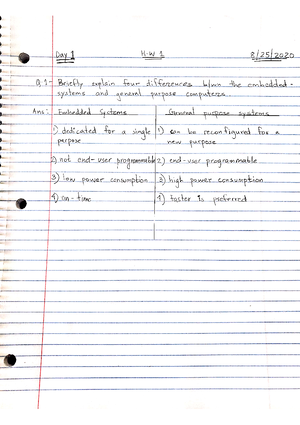 Day 1 H.W 1 8/25/2020
Q.1- Briefly explain four differences b/wn the embedded-
systems and general purpose computers.
Ans: Embedded Systems General purpose systems
1) dedicated for a single 1) can be reconfigured for a
purpose new purpose
2) not end-user programmable 2) end-user programmable
3) low power consumption 3) high power consumption.
4) on-time 4) faster is preferred